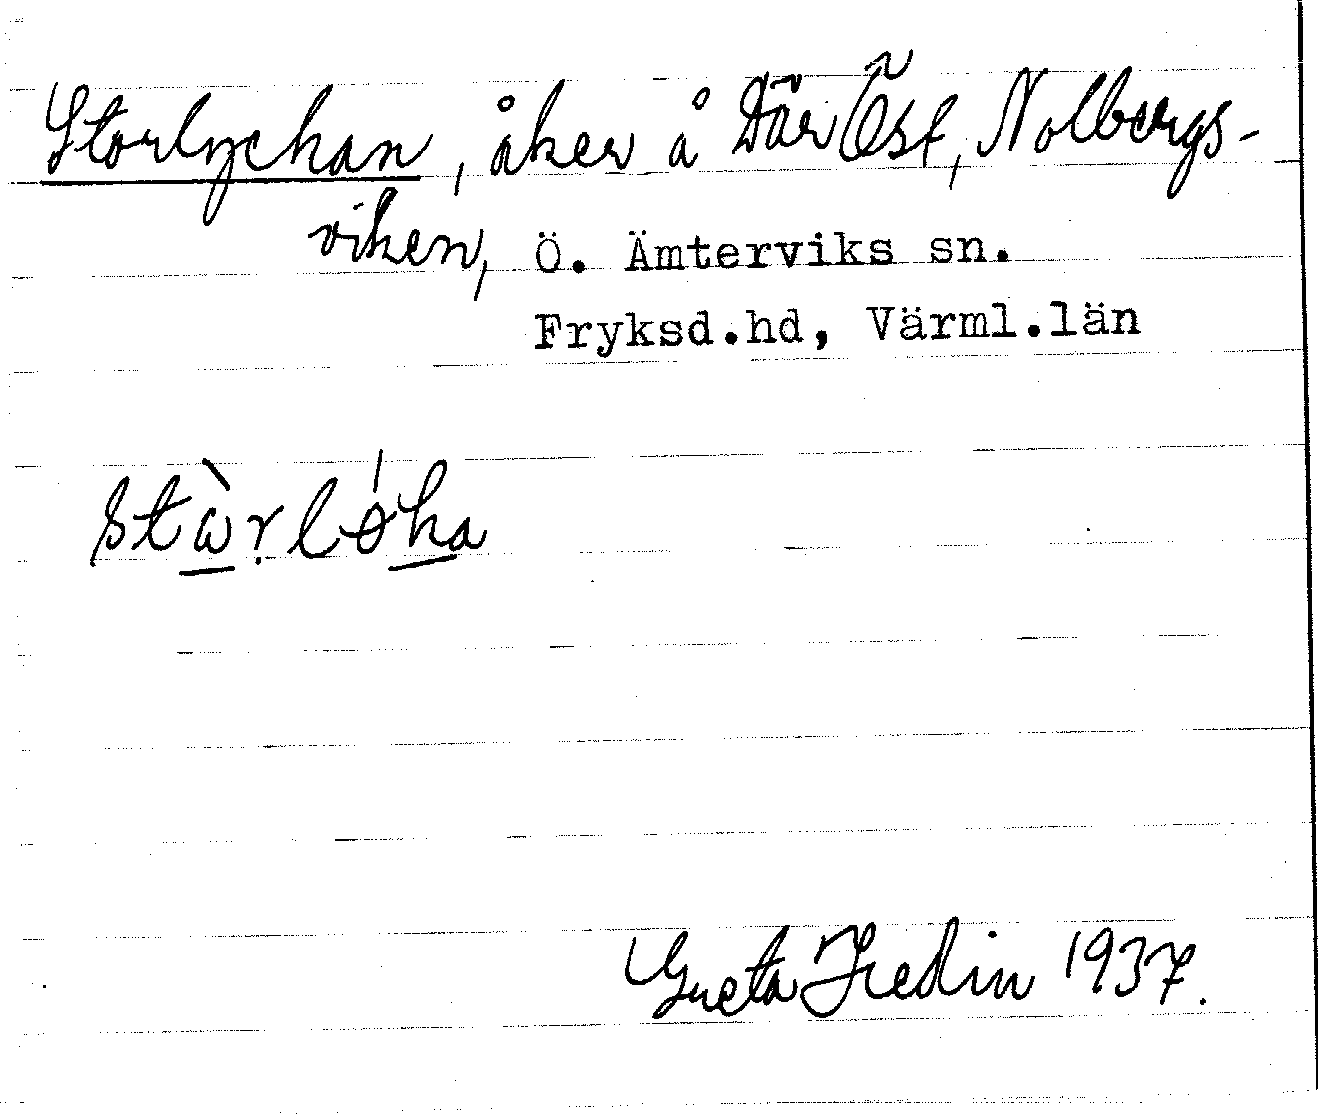 Storlyckan, åker å Där Öst, Nolbergs-
viken, Ö. Ämterviks sn.
Fryksd.hd, Värml.län
stὼṛlǿka
Greta Hedin 1937.